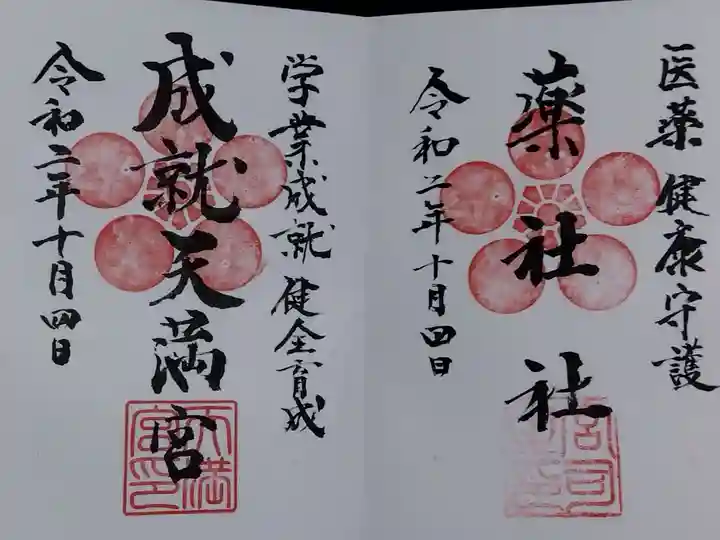 医薬健康守護
薬社社
令和二年十月四日
宮司
学業成就健全育成
成就天満宮
天満宮印
令和二年十月四日